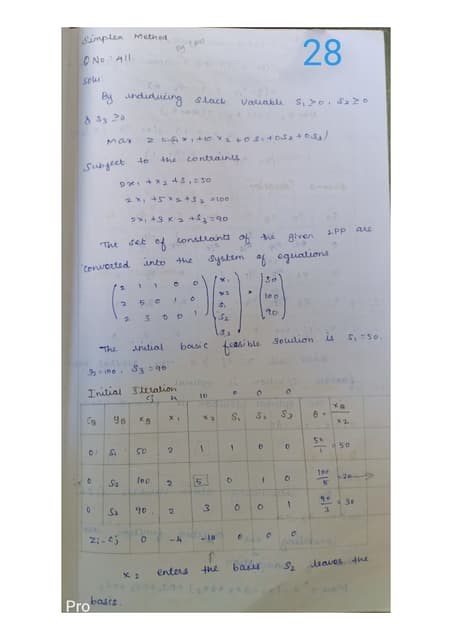 Simplex Method
28
Q No: A11
Solu:
By introducing slack variable S₁ ≥0, S₂ ≥ 0
& S₃ ≥0
Max Z = 4x₁ +10 x₂ +0 S₁ +0S₂ +0S₃
Subject to the contraints
2x₁ + x₂ +S₁ = 50
2 x₁ +5x₂ +S₂ =100
2x₁ +3 x₂ +S₃ =90
The set of constraints of the given LPP are
converted into the system of equations
2 1 1 0 0 x₁ 50
2 5 0 1 0 x₂ = 100
2 3 0 0 1 S₁ 90
S₂
S₃
The initial basic feasible solution is S₁ =50,
S₂ =100, S₃ =90
Initial Iteration
Cj 4 10 0 0 0
CB YB XB x₁ x₂ S₁ S₂ S₃ θ = XB/x₂
0 S₁ 50 2 1 1 0 0 50/1 = 50
0 S₂ 100 2 5 0 1 0 100/5 =20→
0 S₃ 90 2 3 0 0 1 90/3 = 30
Zj-Cj 0 -4 -10 0 0 0
↑
x₂ enters the basis S₂ leaves the
basis.
Pro